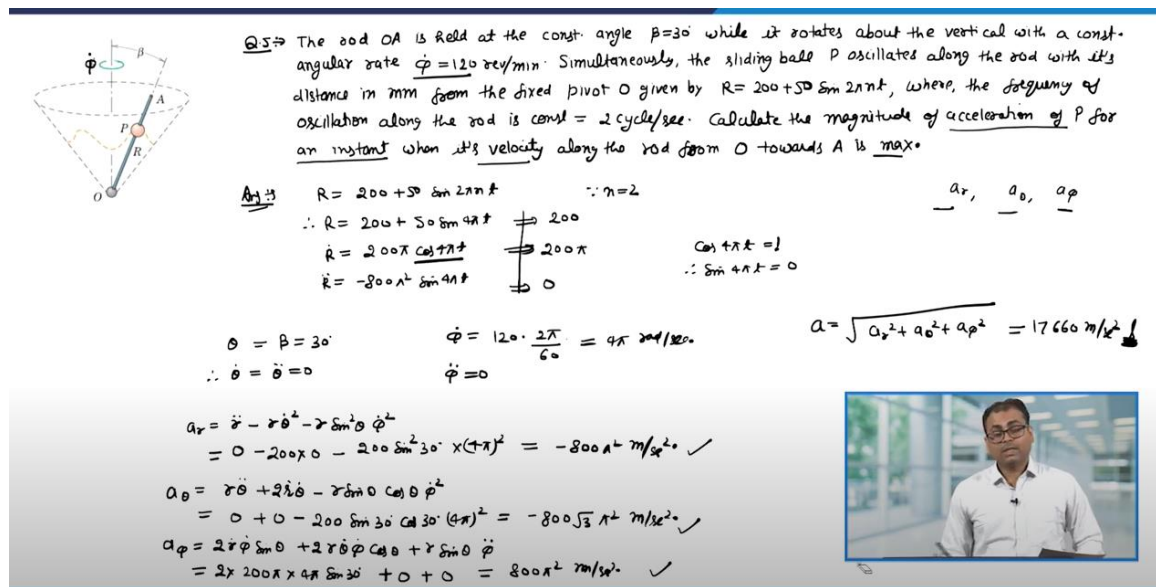 Q.5⇒ The rod OA is held at the const. angle β=30° while it rotates about the vertical with a const.
angular rate φ̇ = 120 rev/min. Simultaneously, the sliding ball P oscillates along the rod with it's
distance in mm from the fixed pivot O given by R = 200 + 50 Sin 2πnt, where, the frequency of
oscillation along the rod is const = 2 cycle/sec. Calculate the magnitude of acceleration of P for
an instant when it's velocity along the rod from O towards A is max.
φ̇
β
A
P
R
O
Ans ⇒ R = 200 + 50 Sin 2πnt ∵ n=2
a_r, a_θ, a_φ
∴ R = 200 + 50 Sin 4πt ⇒ 200
Ṙ = 200π Cos 4πt ⇒ 200π Cos 4πt = 1
R̈ = -800π² Sin 4πt ⇒ 0 ∴ Sin 4πt = 0
a = √(a_r² + a_θ² + a_φ²) = 17660 m/s²
θ = β = 30° φ̇ = 120 · 2π/60 = 4π rad/sec.
∴ θ̇ = θ̈ = 0 φ̈ = 0
a_r = r̈ - rθ̇² - r Sin²θ φ̇²
= 0 - 200×0 - 200 Sin²30° × (4π)² = -800π² m/se². ✓
a_θ = rθ̈ + 2ṙθ̇ - r Sinθ Cosθ φ̇²
= 0 + 0 - 200 Sin 30° Cos 30° (4π)² = -800√3 π² m/se². ✓
a_φ = 2ṙφ̇ Sinθ + 2rθ̇φ̇ Cosθ + r Sinθ φ̈
= 2× 200π × 4π Sin 30° + 0 + 0 = 800π² m/se². ✓